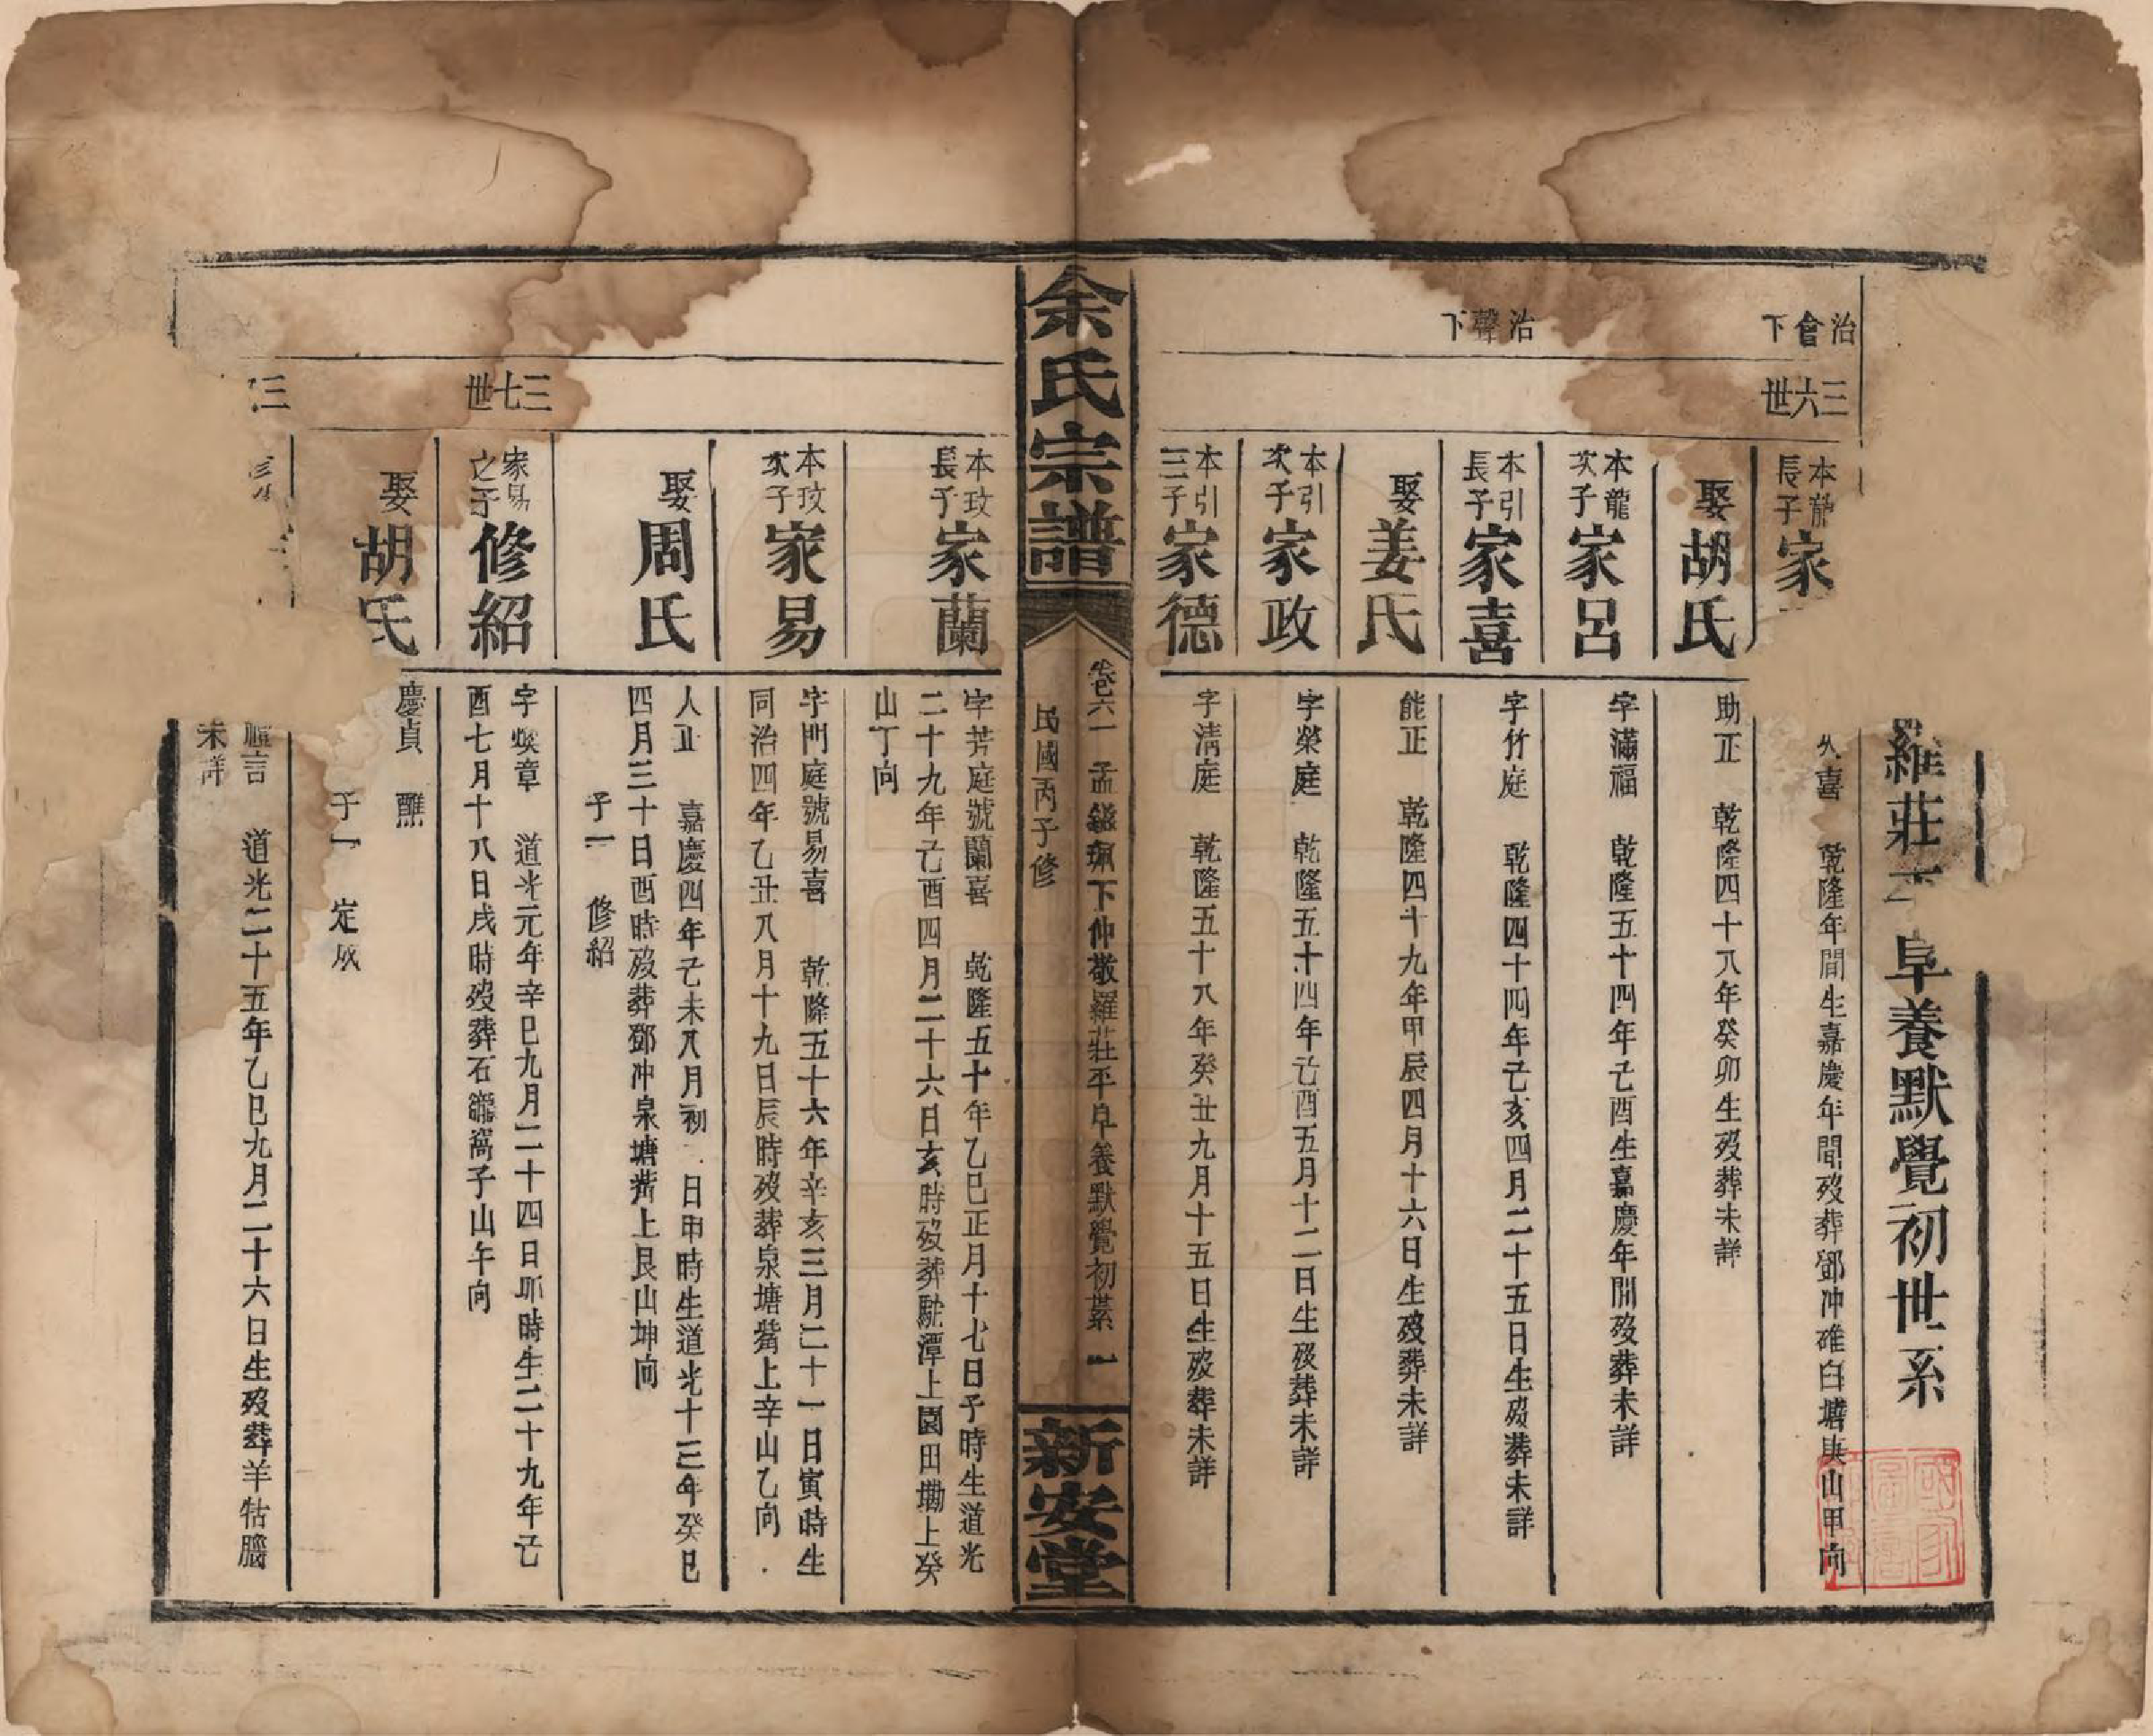 羅莊 阜養默覺初世系
治會下
三六世
本龍長子 家
久喜 乾隆年間生嘉慶年間歿葬鄧冲碓臼塘庚山甲向
娶胡氏
助正 乾隆四十八年癸卯生歿葬未詳
本龍次子 家呂
字滿福 乾隆五十四年己酉生嘉慶年間歿葬未詳
治聲下
本引長子 家喜
字竹庭 乾隆四十四年己亥四月二十五日生歿葬未詳
娶姜氏
能正 乾隆四十九年甲辰四月十六日生歿葬未詳
本引次子 家政
字榮庭 乾隆五十四年己酉五月十二日生歿葬未詳
本引三子 家德
字清庭 乾隆五十八年癸丑九月十五日生歿葬未詳
余氏宗譜
卷六一 孟鎡珮下仲敬羅莊平阜養默覺初系 一
民國丙子修
新安堂
本玟長子 家蘭
字芳庭號蘭喜 乾隆五十年乙巳正月十七日子時生道光
二十九年己酉四月二十六日亥時歿葬駝潭上園田墈上癸
山丁向
本玟次子 家易
字門庭號易喜 乾隆五十六年辛亥三月二十一日寅時生
同治四年乙丑八月十九日辰時歿葬泉塘嵴上辛山乙向
娶周氏
人正 嘉慶四年己未八月初 日申時生道光十三年癸巳
四月三十日酉時歿葬鄧冲泉塘嵴上艮山坤向
子一 修紹
三七世
家易之子 修紹
字煥章 道光元年辛巳九月二十四日卯時生二十九年己
酉七月十八日戌時歿葬石龍窩子山午向
娶胡氏
慶貞 醮
子一 定成
三
言 道光二十五年乙巳九月二十六日生歿葬羊牯腦
未詳